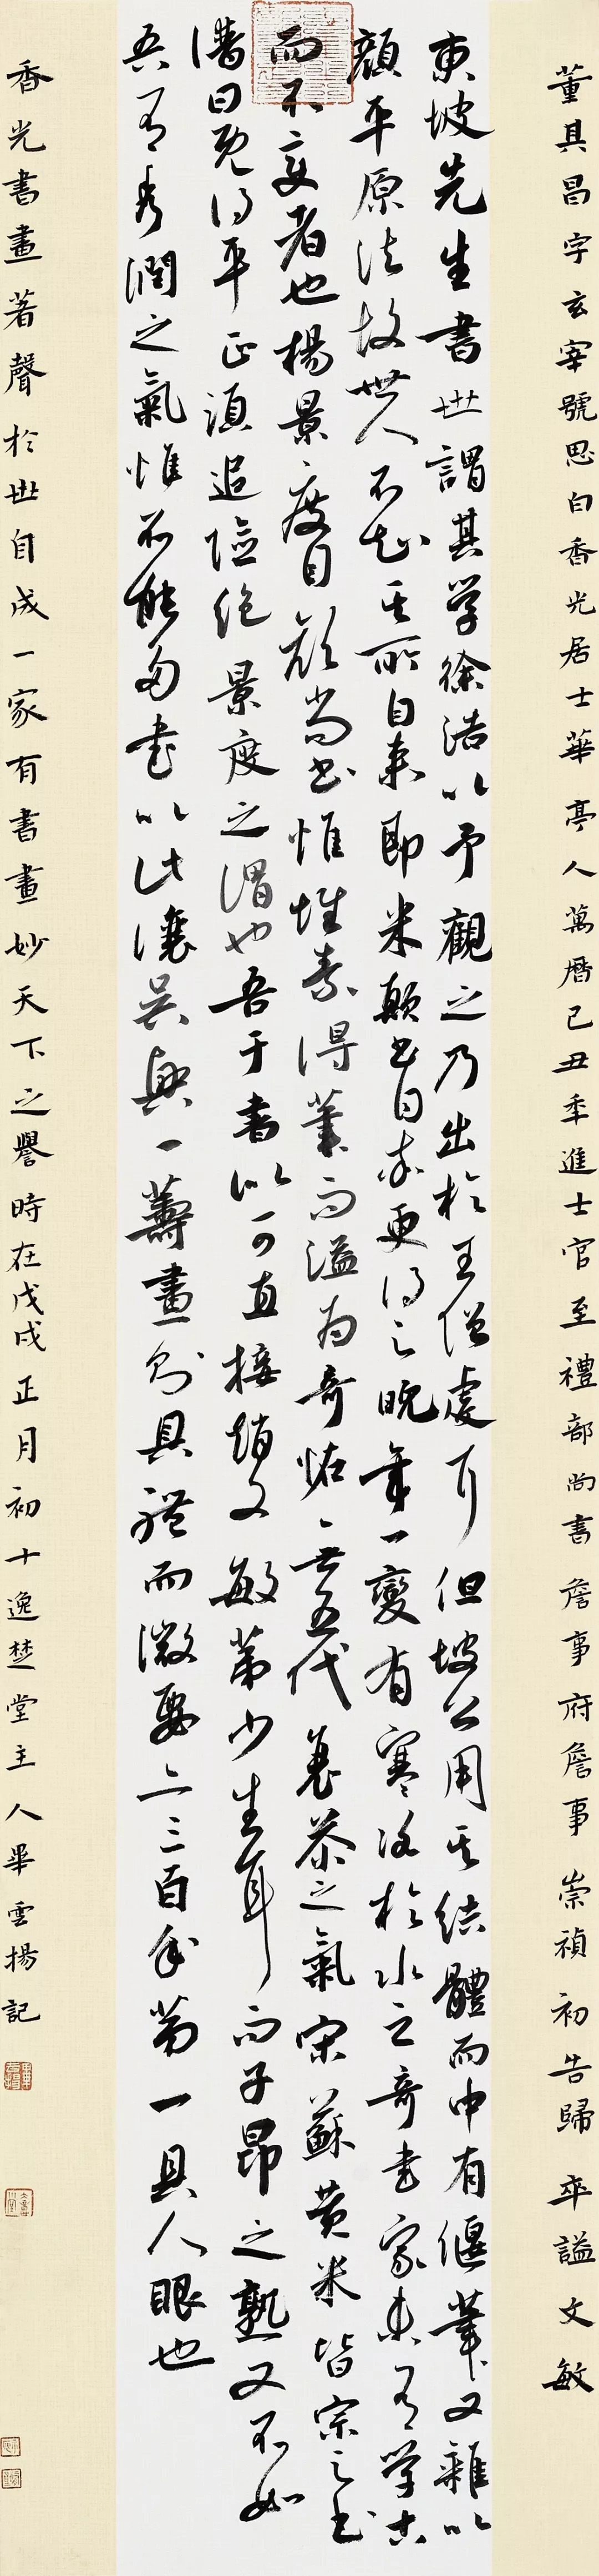 董其昌字玄宰號思白香光居士華亭人萬曆己丑年進士官至禮部尚書詹事府詹事崇禎初告歸卒謚文敏
東坡先生書世謂其学徐浩以予觀之乃出於王僧虔耳但坡公用其結體而中有偃筆又雜以
顏平原法故世人不知其所自来即米顛書自率更得之晚年一變有寒冰於水之奇書家未有学古
而不变者也楊景度自顏尚書懷素得筆而溢为奇怪無五代衰茶之氣宋蘇黄米皆宗之書
譜曰既得平正須追險絶景度之謂也吾于書似可直接趙文敏第少生耳而子昂之熟又不如
吾有秀潤之氣惟不能多書以此讓吳興一籌畫则具體而微要亦三百年第一具人眼也
香光書畫著聲於世自成一家有書畫妙天下之譽時在戊戌正月初十逸楚堂主人畢雲揚記